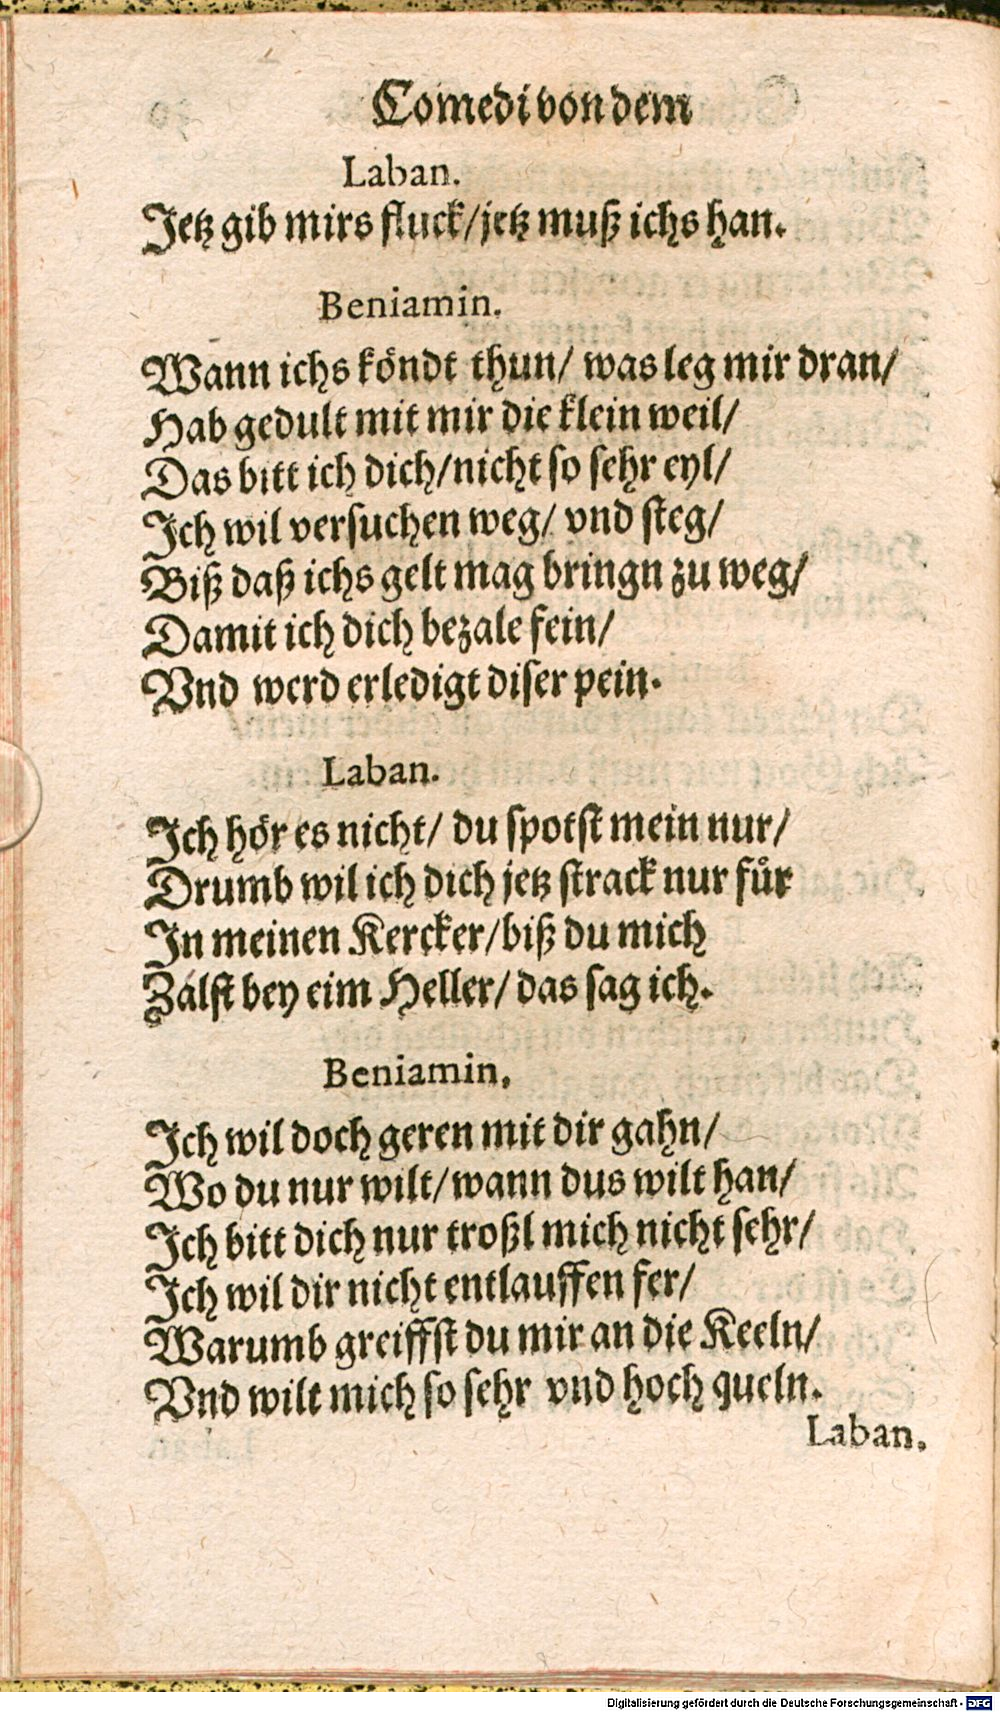 Comedi von dem
Laban.
Jetz gib mirs fluck/jetz muß ichs han.
Beniamin.
Wann ichs köndt thun/ was leg mir dran/
Hab gedult mit mir die klein weil/
Das bitt ich dich/nicht so sehr eyl/
Ich wil versuchen weg/ vnd steg/
Biß daß ichs gelt mag bringn zu weg/
Damit ich dich bezale fein/
Vnd werd erledigt diser pein.
Laban.
Ich hör es nicht/ du spotst mein nur/
Drumb wil ich dich jetz strack nur fuͤr
In meinen Kercker/biß du mich
Zalst bey eim Heller/ das sag ich.
Beniamin.
Ich wil doch geren mit dir gahn/
Wo du nur wilt/wann dus wilt han/
Ich bitt dich nur troßl mich nicht sehr/
Ich wil dir nicht entlauffen fer/
Warumb greiffst du mir an die Keeln/
Vnd wilt mich so sehr vnd hoch queln.
Laban.
Digitalisierung gefördert durch die Deutsche Forschungsgemeinschaft - DFG